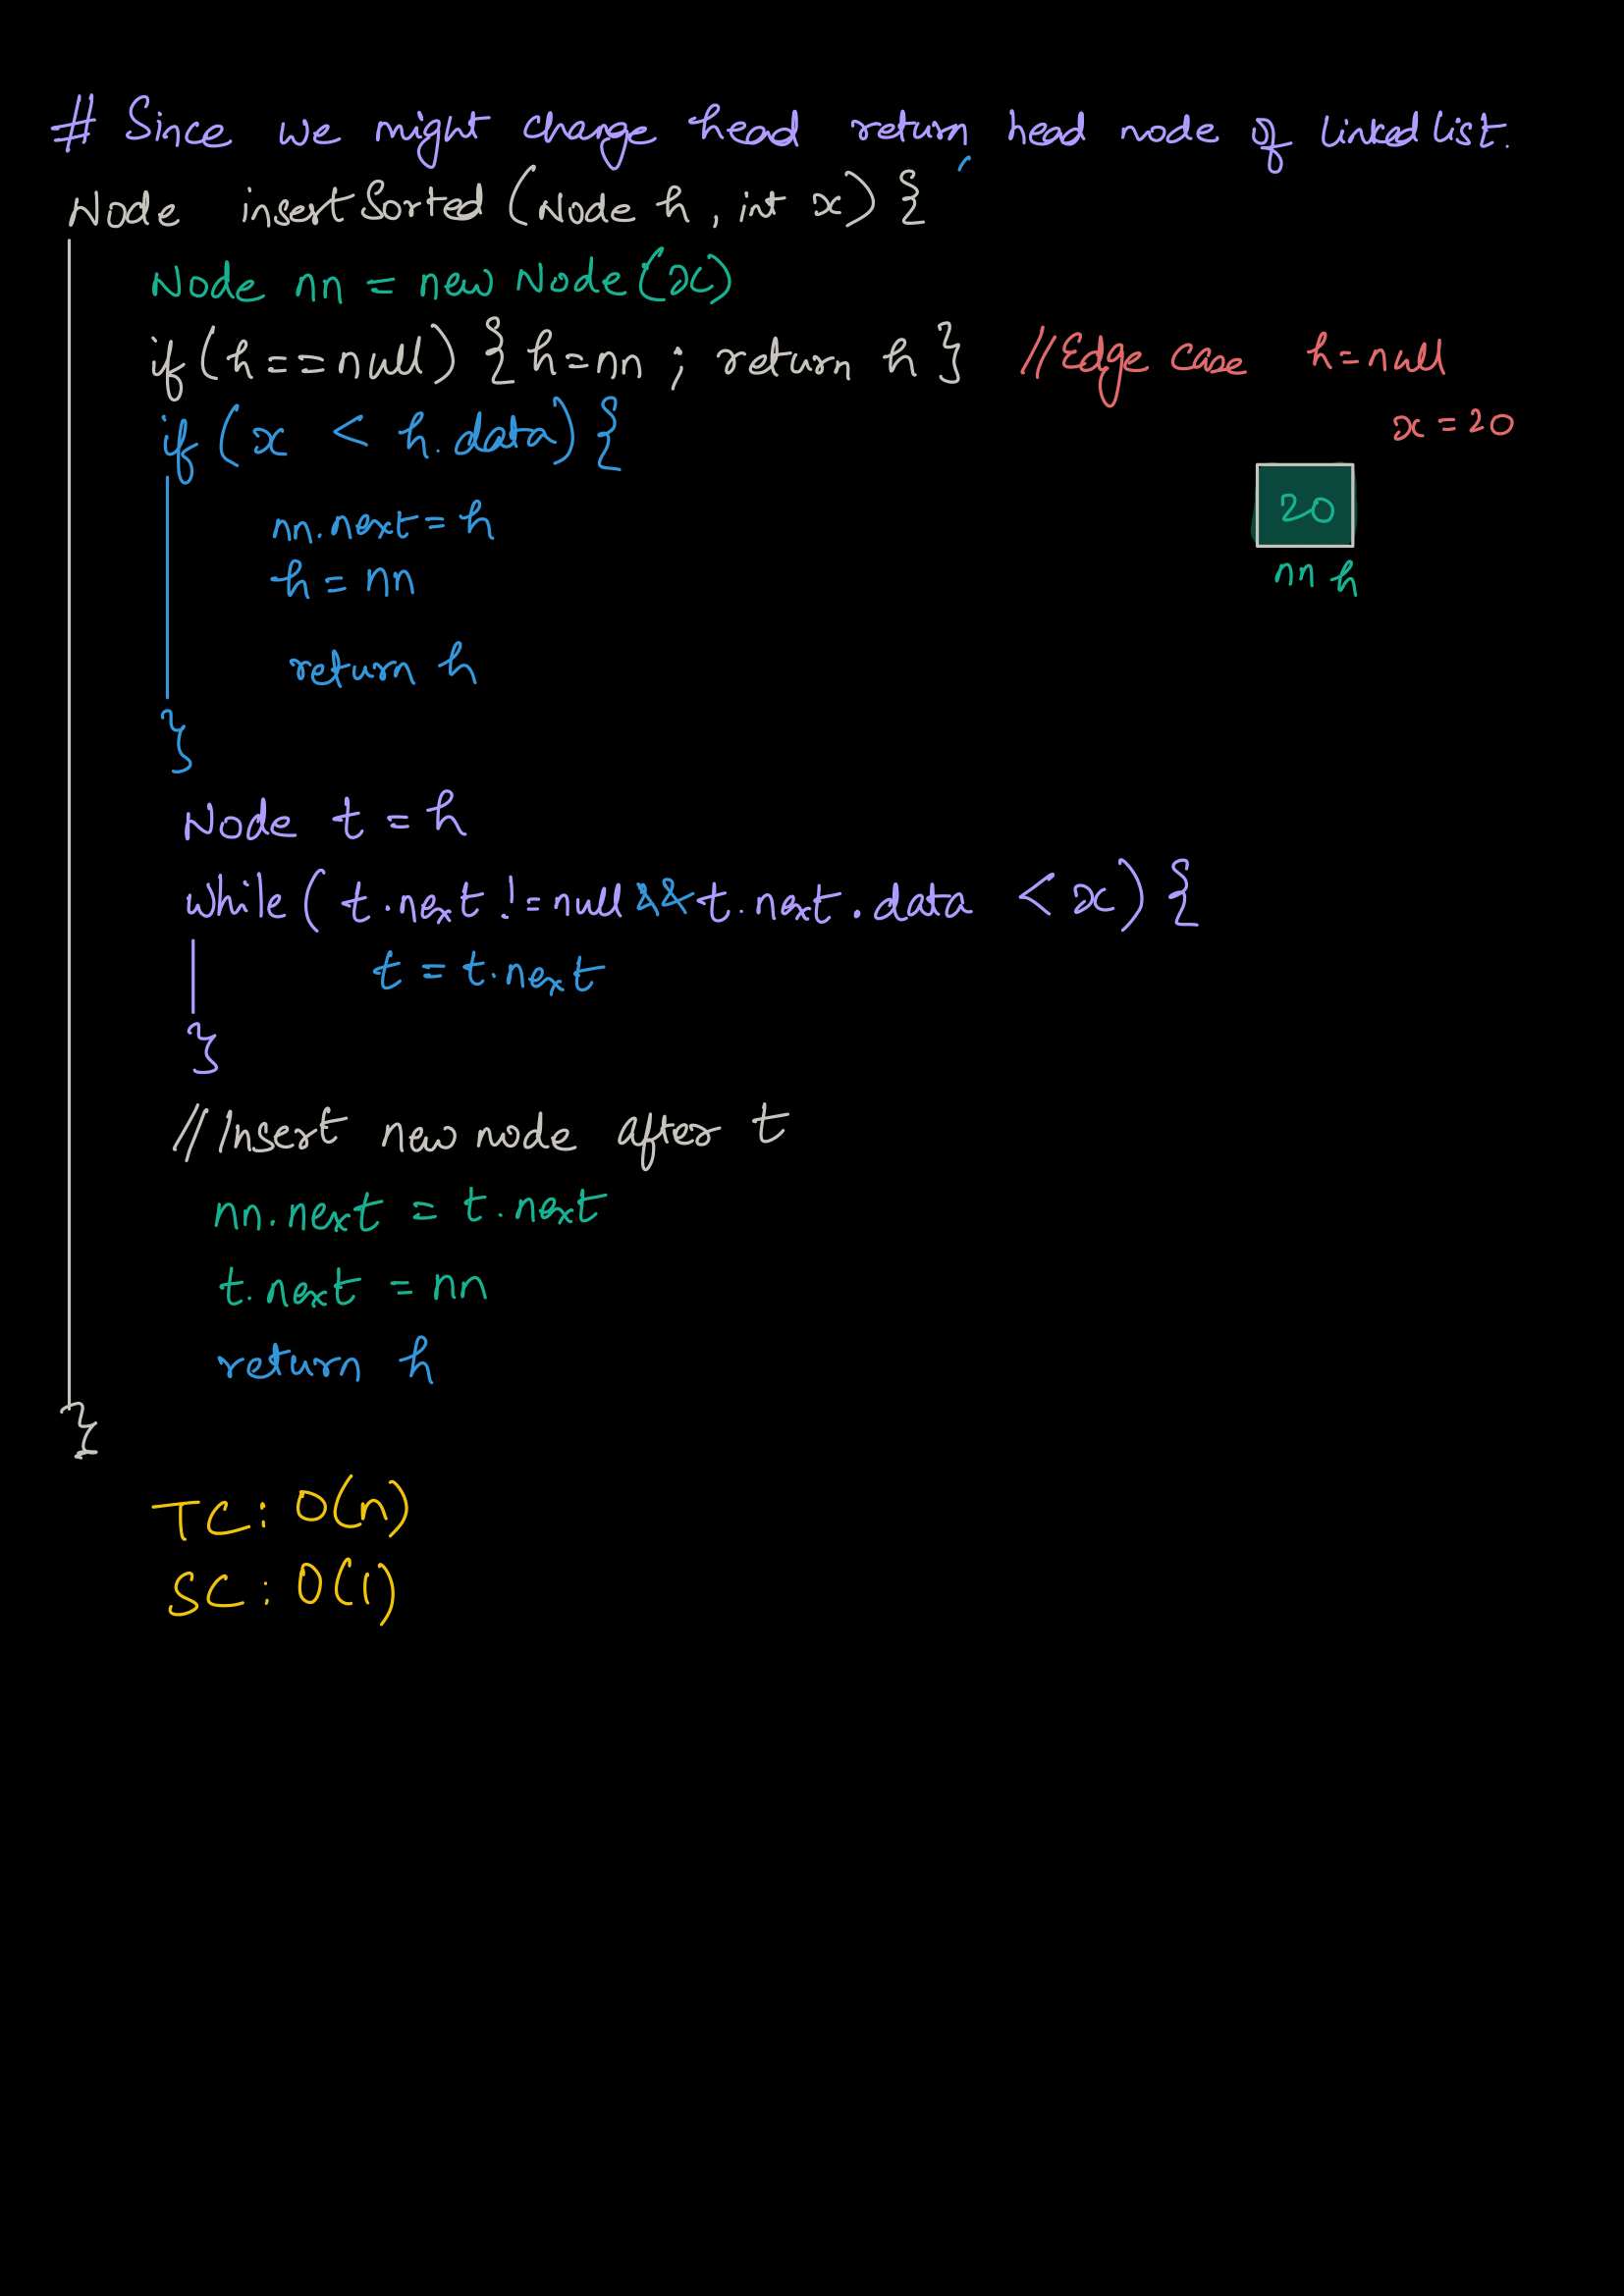 # Since we might change head return head node of linked list.
Node insertSorted (Node h, int x) {
Node nn = new Node(x)
if (h==null) { h=nn ; return h } //Edge case h=null
x=20
if (x < h.data) {
20
nn.next=h
nn h
h = nn
return h
}
Node t = h
while ( t.next != null && t.next.data < x) {
t = t.next
}
//Insert new node after t
nn.next = t.next
t.next = nn
return h
}
TC: O(n)
SC: O(1)